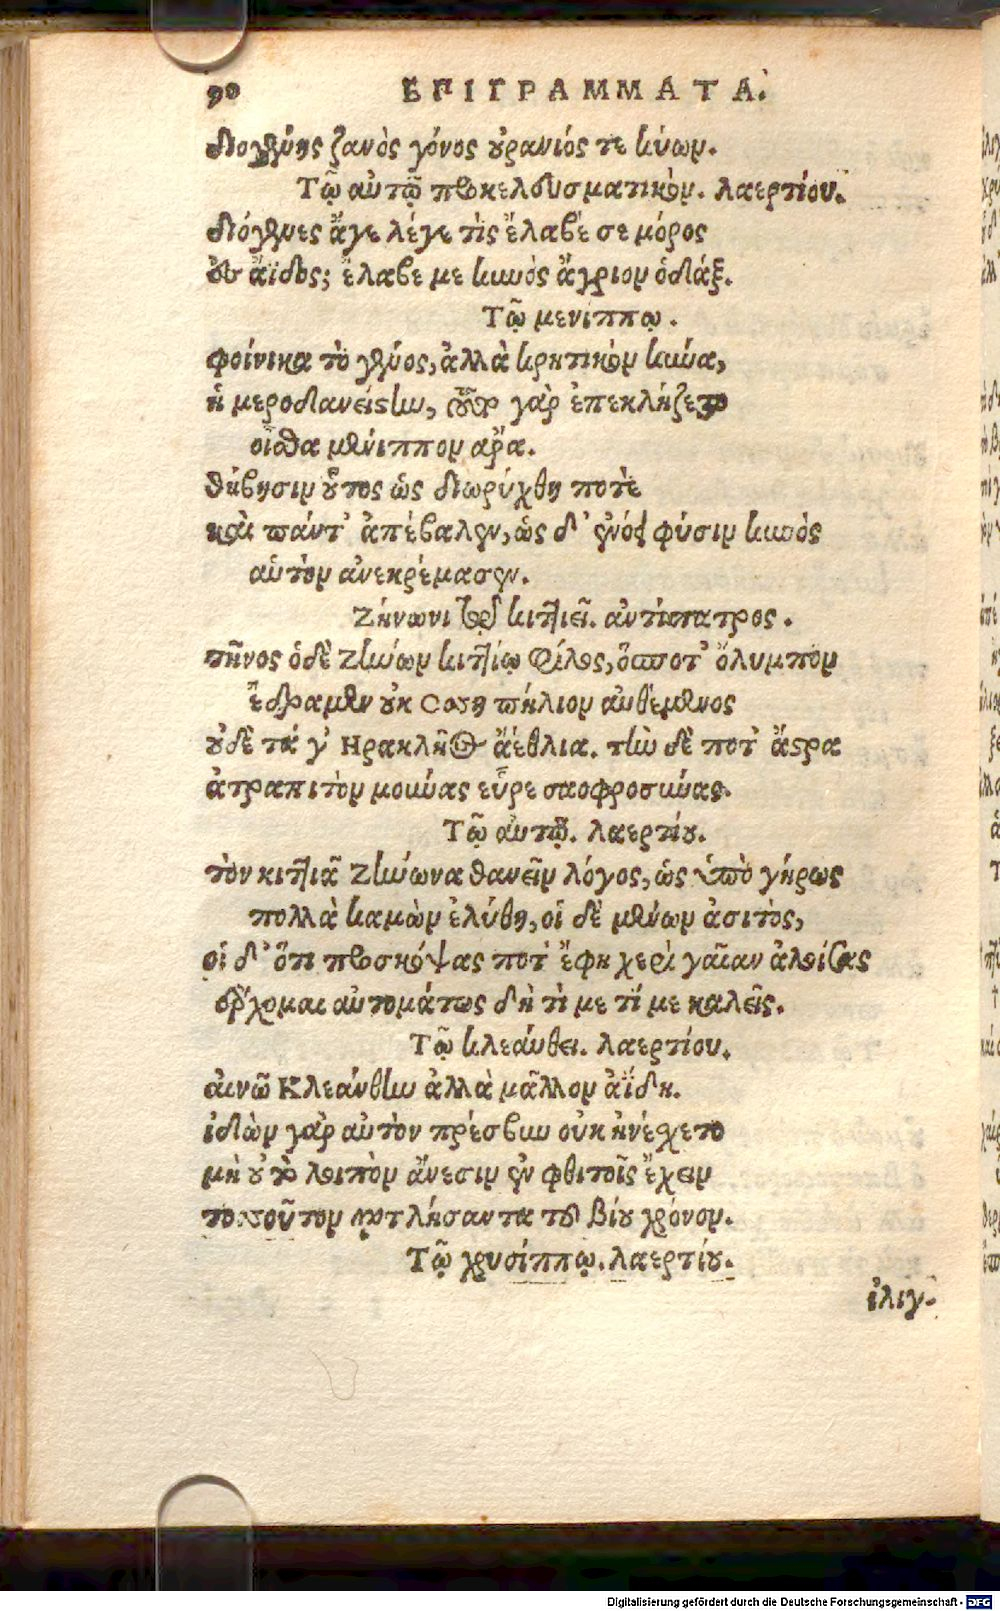 90 ΕΠΙΓΡΑΜΜΑΤΑ.
διογένης ζανὸς γόνος οὐράνιός τε κύων.
Τῷ αὐτῷ προκελευσματικὸν. λαερτίου.
διόγενες ἄγε λέγε τὶς ἔλαβέ σε μόρος
ἐς ἄϊδος; ἔλαβε με κυνὸς ἄγριον ὀδάξ.
Τῷ μενίππῳ.
φοίνικα τὸ γένος, ἀλλὰ κρητικὸν κύνα,
ἡμεροδανειστὴν, οὗτος γὰρ ἐπεκλήζετο
οἶσθα μένιππον αρα.
θήβησιν οὗτος ὡς διωρύχθη ποτὲ
καὶ πάντ' ἀπέβαλεν, ὡς δ' ἐνόει φύσιν κυνὸς
αὑτὸν ἀνεκρέμασεν.
Ζήνωνι τῷ κιττιεῖ. ἀντίπατρος.
τῆνος ὁδὲ Ζήνων κιττίῳ φίλος, ὅς ποτ' ὄλυμπον
ἔδραμεν οὐκ ὄσσῃ πήλιον ἀνθέμενος
οὐδὲ τά γ' Ηρακλῆος ἀέθλια. τὴν δὲ ποτ' ἄστρα
ἀτραπιτὸν μούνας εὗρε σαοφροσύνας.
Τῷ αὐτῷ. λαερτίου.
τὸν κιττιᾶ Ζήνωνα θανεῖν λόγος, ὡς ὑπὸ γήρως
πολλὰ καμὼν ἐλύθη, οἱ δὲ μένων ἀσιτὸς,
οἱ δ' ὅτι προσκόψας ποτ' ἔφη χερὶ γαῖαν ἀλοίσας
ἔρχομαι αὐτομάτως δὴ τί με τί με καλεῖς.
Τῷ κλεάνθει. λαερτίου.
αἰνῶ Κλεάνθην ἀλλὰ μᾶλλον ἀΐδην.
ἰδὼν γὰρ αὐτὸν πρέσβυν οὐκ ἠνέχετο
μὴ οὐ τὸ λοιπὸν ἄνεσιν ἐν φθιτοῖς ἔχειν
τοσοῦτον ἀντλήσαντα τοῦ βίου χρόνον.
Τῷ χρυσίππῳ. λαερτίου.
ἰλιγ-
Digitalisierung gefördert durch die Deutsche Forschungsgemeinschaft - DFG